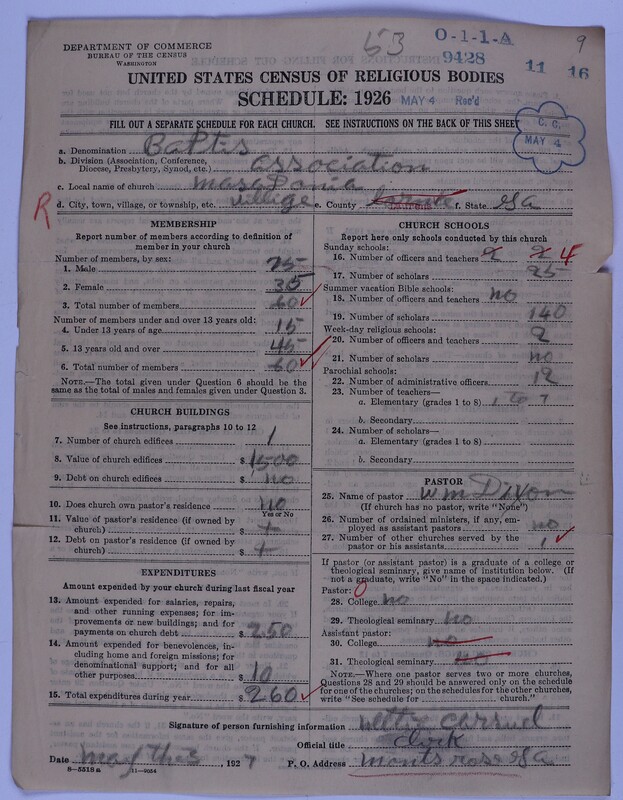 DEPARTMENT OF COMMERCE
BUREAU OF THE CENSUS
WASHINGTON
53
O-1-1-A
9428
11 16
9
UNITED STATES CENSUS OF RELIGIOUS BODIES
SCHEDULE: 1926 MAY 4 Rec'd
FILL OUT A SEPARATE SCHEDULE FOR EACH CHURCH. SEE INSTRUCTIONS ON THE BACK OF THIS SHEET
C. C.
MAY 4
a. Denomination Baptis
b. Division (Association, Conference,
Diocese, Presbytery, Synod, etc.) association
c. Local name of church masadonia
R
d. City, town, village, or township, etc. villige e. County f. State Ga
MEMBERSHIP
Report number of members according to definition of
member in your church
Number of members, by sex:
1. Male 25
2. Female 35
3. Total number of members 60
Number of members under and over 13 years old:
4. Under 13 years of age 15
5. 13 years old and over 45
6. Total number of members 60
NOTE.—The total given under Question 6 should be
the same as the total of males and females given under Question 3.
CHURCH BUILDINGS
See instructions, paragraphs 10 to 12
7. Number of church edifices 1
8. Value of church edifices $ 1500
9. Debt on church edifices $ no
10. Does church own pastor's residence no
Yes or No
11. Value of pastor's residence (if owned by
church) $
12. Debt on pastor's residence (if owned by
church) $
EXPENDITURES
Amount expended by your church during last fiscal year
13. Amount expended for salaries, repairs,
and other running expenses; for im-
provements or new buildings; and for
payments on church debt $ 250
14. Amount expended for benevolences, in-
cluding home and foreign missions; for
denominational support; and for all
other purposes $ 10
15. Total expenditures during year $ 260
CHURCH SCHOOLS
Report here only schools conducted by this church
Sunday schools:
16. Number of officers and teachers 2 2 4
17. Number of scholars 25
Summer vacation Bible schools:
18. Number of officers and teachers no
19. Number of scholars 140
Week-day religious schools:
20. Number of officers and teachers 2
21. Number of scholars no
Parochial schools:
22. Number of administrative officers 12
23. Number of teachers—
a. Elementary (grades 1 to 8) 1 to 7
b. Secondary
24. Number of scholars—
a. Elementary (grades 1 to 8)
b. Secondary
PASTOR
25. Name of pastor Wm Dixon
(If church has no pastor, write "None")
26. Number of ordained ministers, if any, em-
ployed as assistant pastors no
27. Number of other churches served by the
pastor or his assistants 1
If pastor (or assistant pastor) is a graduate of a college or
theological seminary, give name of institution below. (If
not a graduate, write "No" in the space indicated.)
Pastor: 0
28. College no
29. Theological seminary No
Assistant pastor:
30. College no
31. Theological seminary No
NOTE.—Where one pastor serves two or more churches,
Questions 28 and 29 should be answered only on the schedule
for one of the churches; on the schedules for the other churches,
write "See schedule for church."
Signature of person furnishing information
Official title Clerk
Date may the 2, 1927 P. O. Address montrose Ga
8—5518 a 11—9054